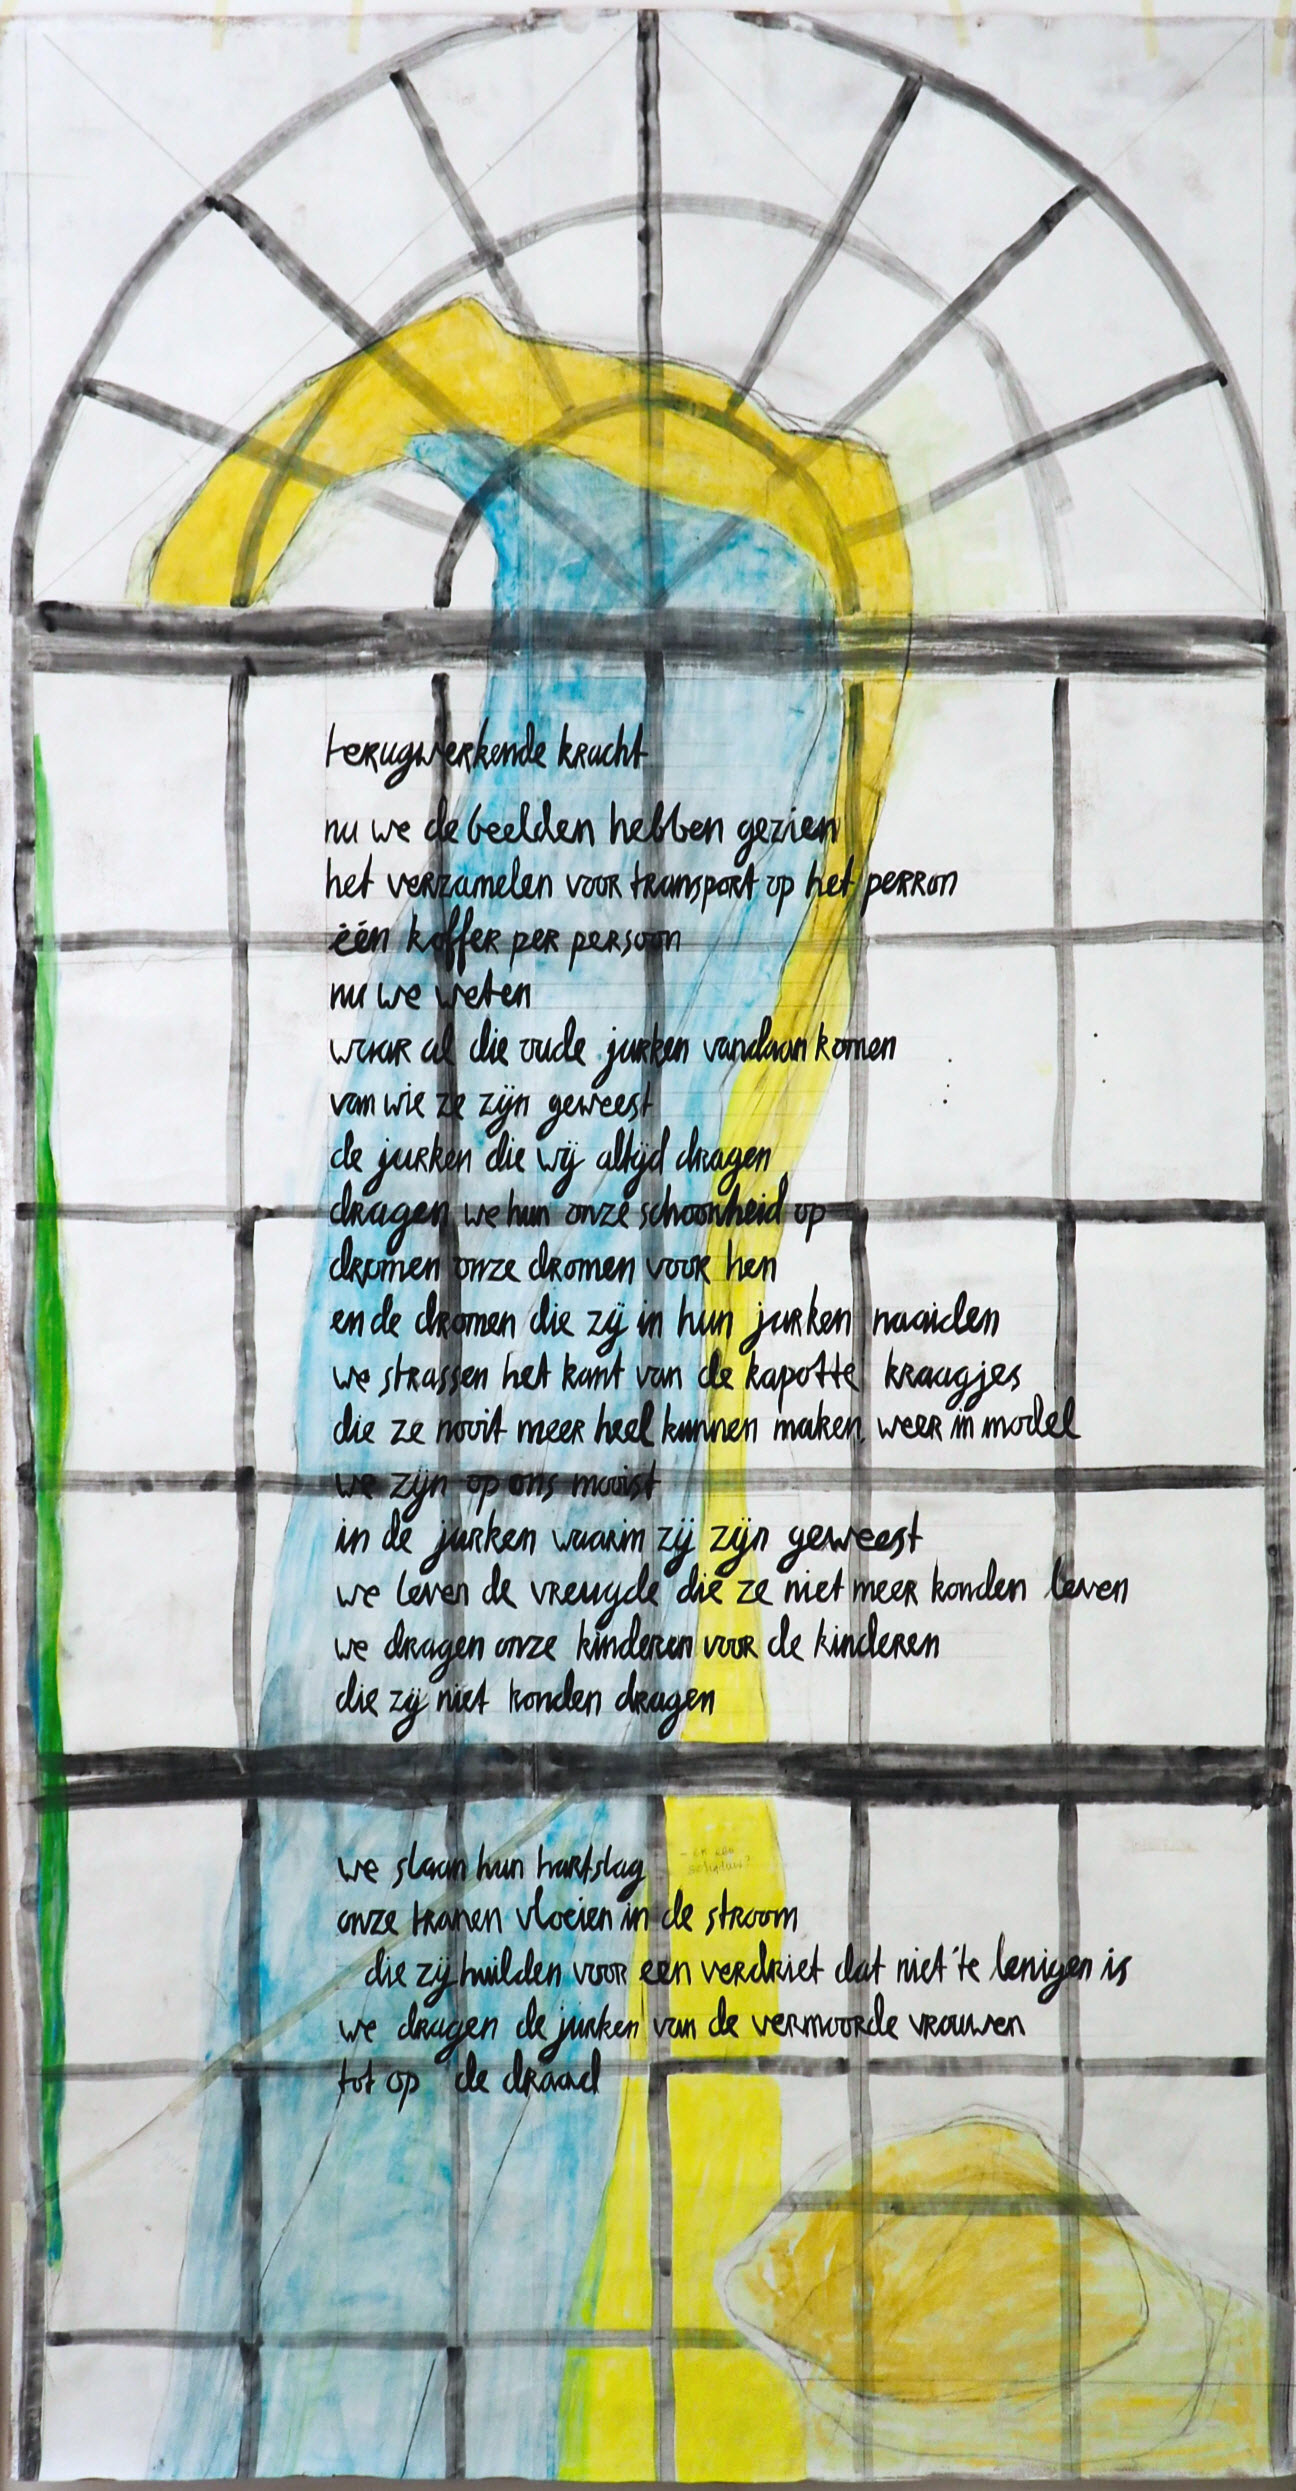 terugwerkende kracht
nu we de beelden hebben gezien
het verzamelen voor transport op het perron
één koffer per persoon
nu we weten
waar al die oude jurken vandaan komen
van wie ze zijn geweest
de jurken die wij altijd dragen
dragen we hun onze schoonheid op
dromen onze dromen voor hen
en de dromen die zij in hun jurken naaiden
we strassen het kant van de kapotte kraagjes
die ze nooit meer heel kunnen maken weer in model
we zijn op ons mooist
in de jurken waarin zij zijn geweest
we leven de vreugde die ze niet meer konden leven
we dragen onze kinderen voor de kinderen
die zij niet konden dragen
we slaan hun hartslag
onze tranen vloeien in de stroom
die zij huilden voor een verdriet dat niet te lenigen is
we dragen de jurken van de vermoorde vrouwen
tot op de draad